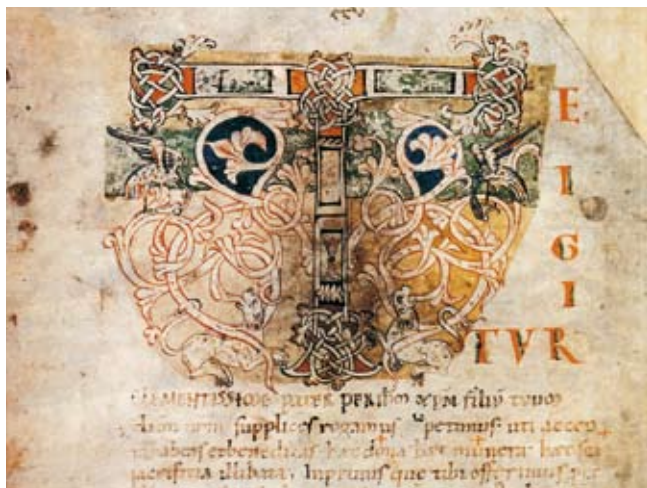 T
E
I
G
I
TVR
CLEMENTISSIME PATER PER filiū tuum
supplices rogamus petimus uti accep
habeas et benedicas haec dona haec munera haec sca
sacrificia illibata, Inprimis que tibi offerimus